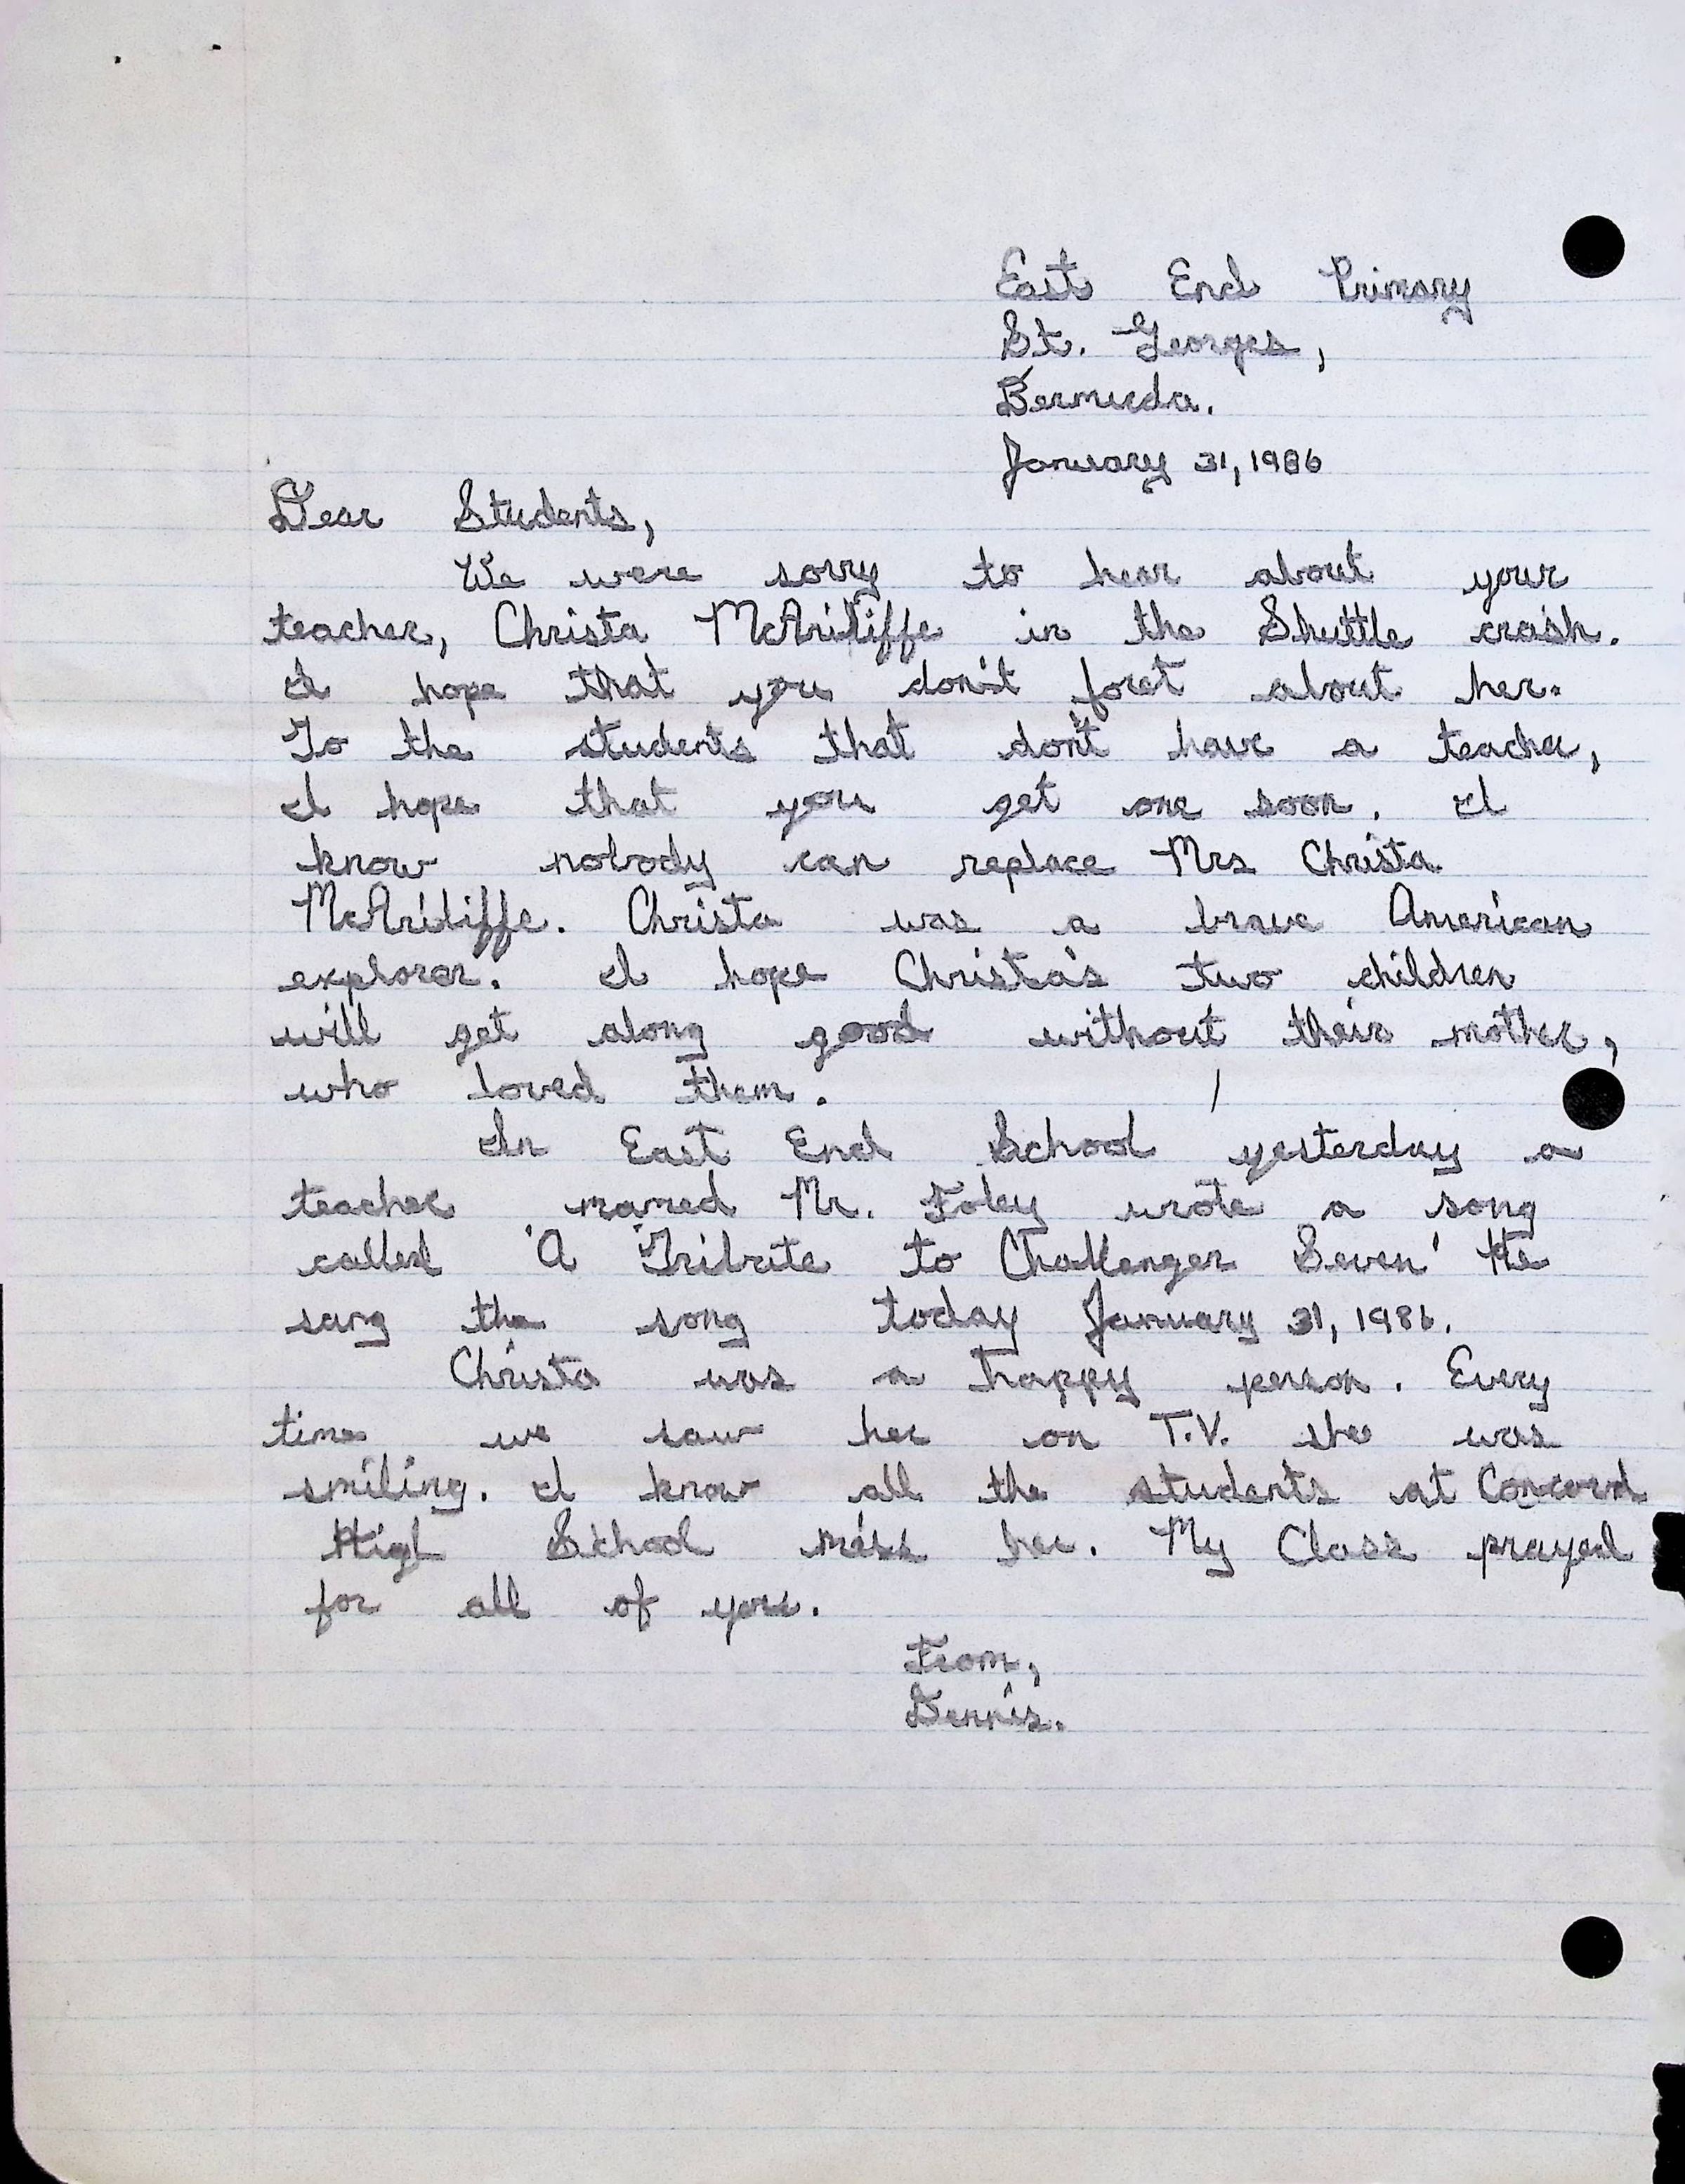 East End Primary
St. Georges,
Bermuda.
January 31, 1986
Dear Students,
We were sorry to hear about your
teacher, Christa McAriliffe in the Shuttle crash.
I hope that you don't foret about her.
To the students that don't have a teacher,
I hope that you get one soon. I
know nobody can replace Mrs Christa
McAriliffe. Christa was a brave American
explorer. I hope Christa's two children
will get along good without their mother,
who loved them.
In East End School yesterday a
teacher named Mr. Foley wrote a song
called 'A Tribute to Challenger Seven' He
sang the song today January 31, 1986.
Christa was a happy person. Every
time we saw her on T.V. she was
smiling. I know all the students at Concord
High School miss her. My Class prayed
for all of you.
From,
Dennis.